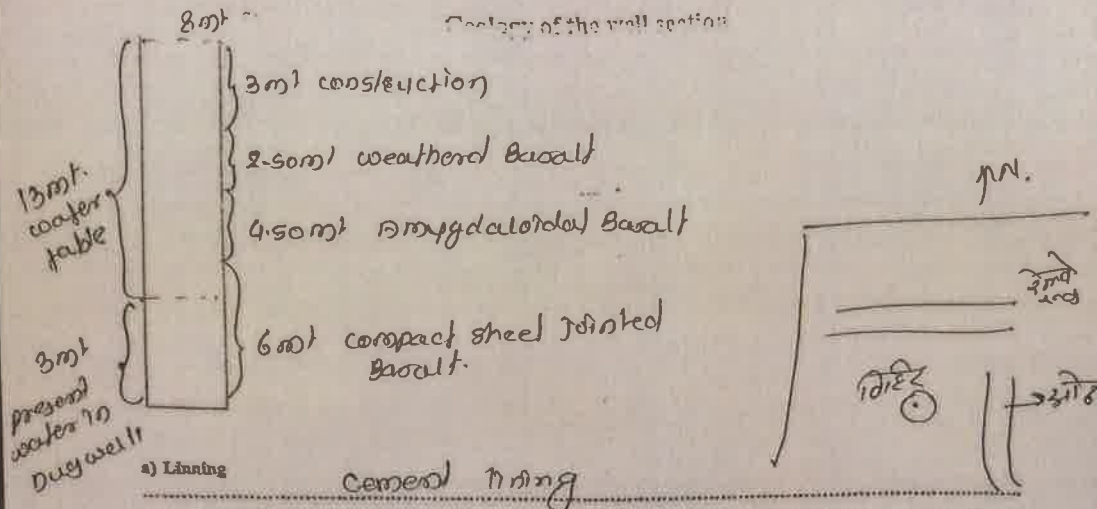 8mt
Geology of the well section
3mt construction
2.50mt weatherd Basalt
4.50mt Amygdaloidal Basalt
6mt compact sheet Jointed
Basalt.
13mt.
water
table
3mt
present
water in
Dugwell
N.
विहिर
ओढा
a) Linning
Cement lining